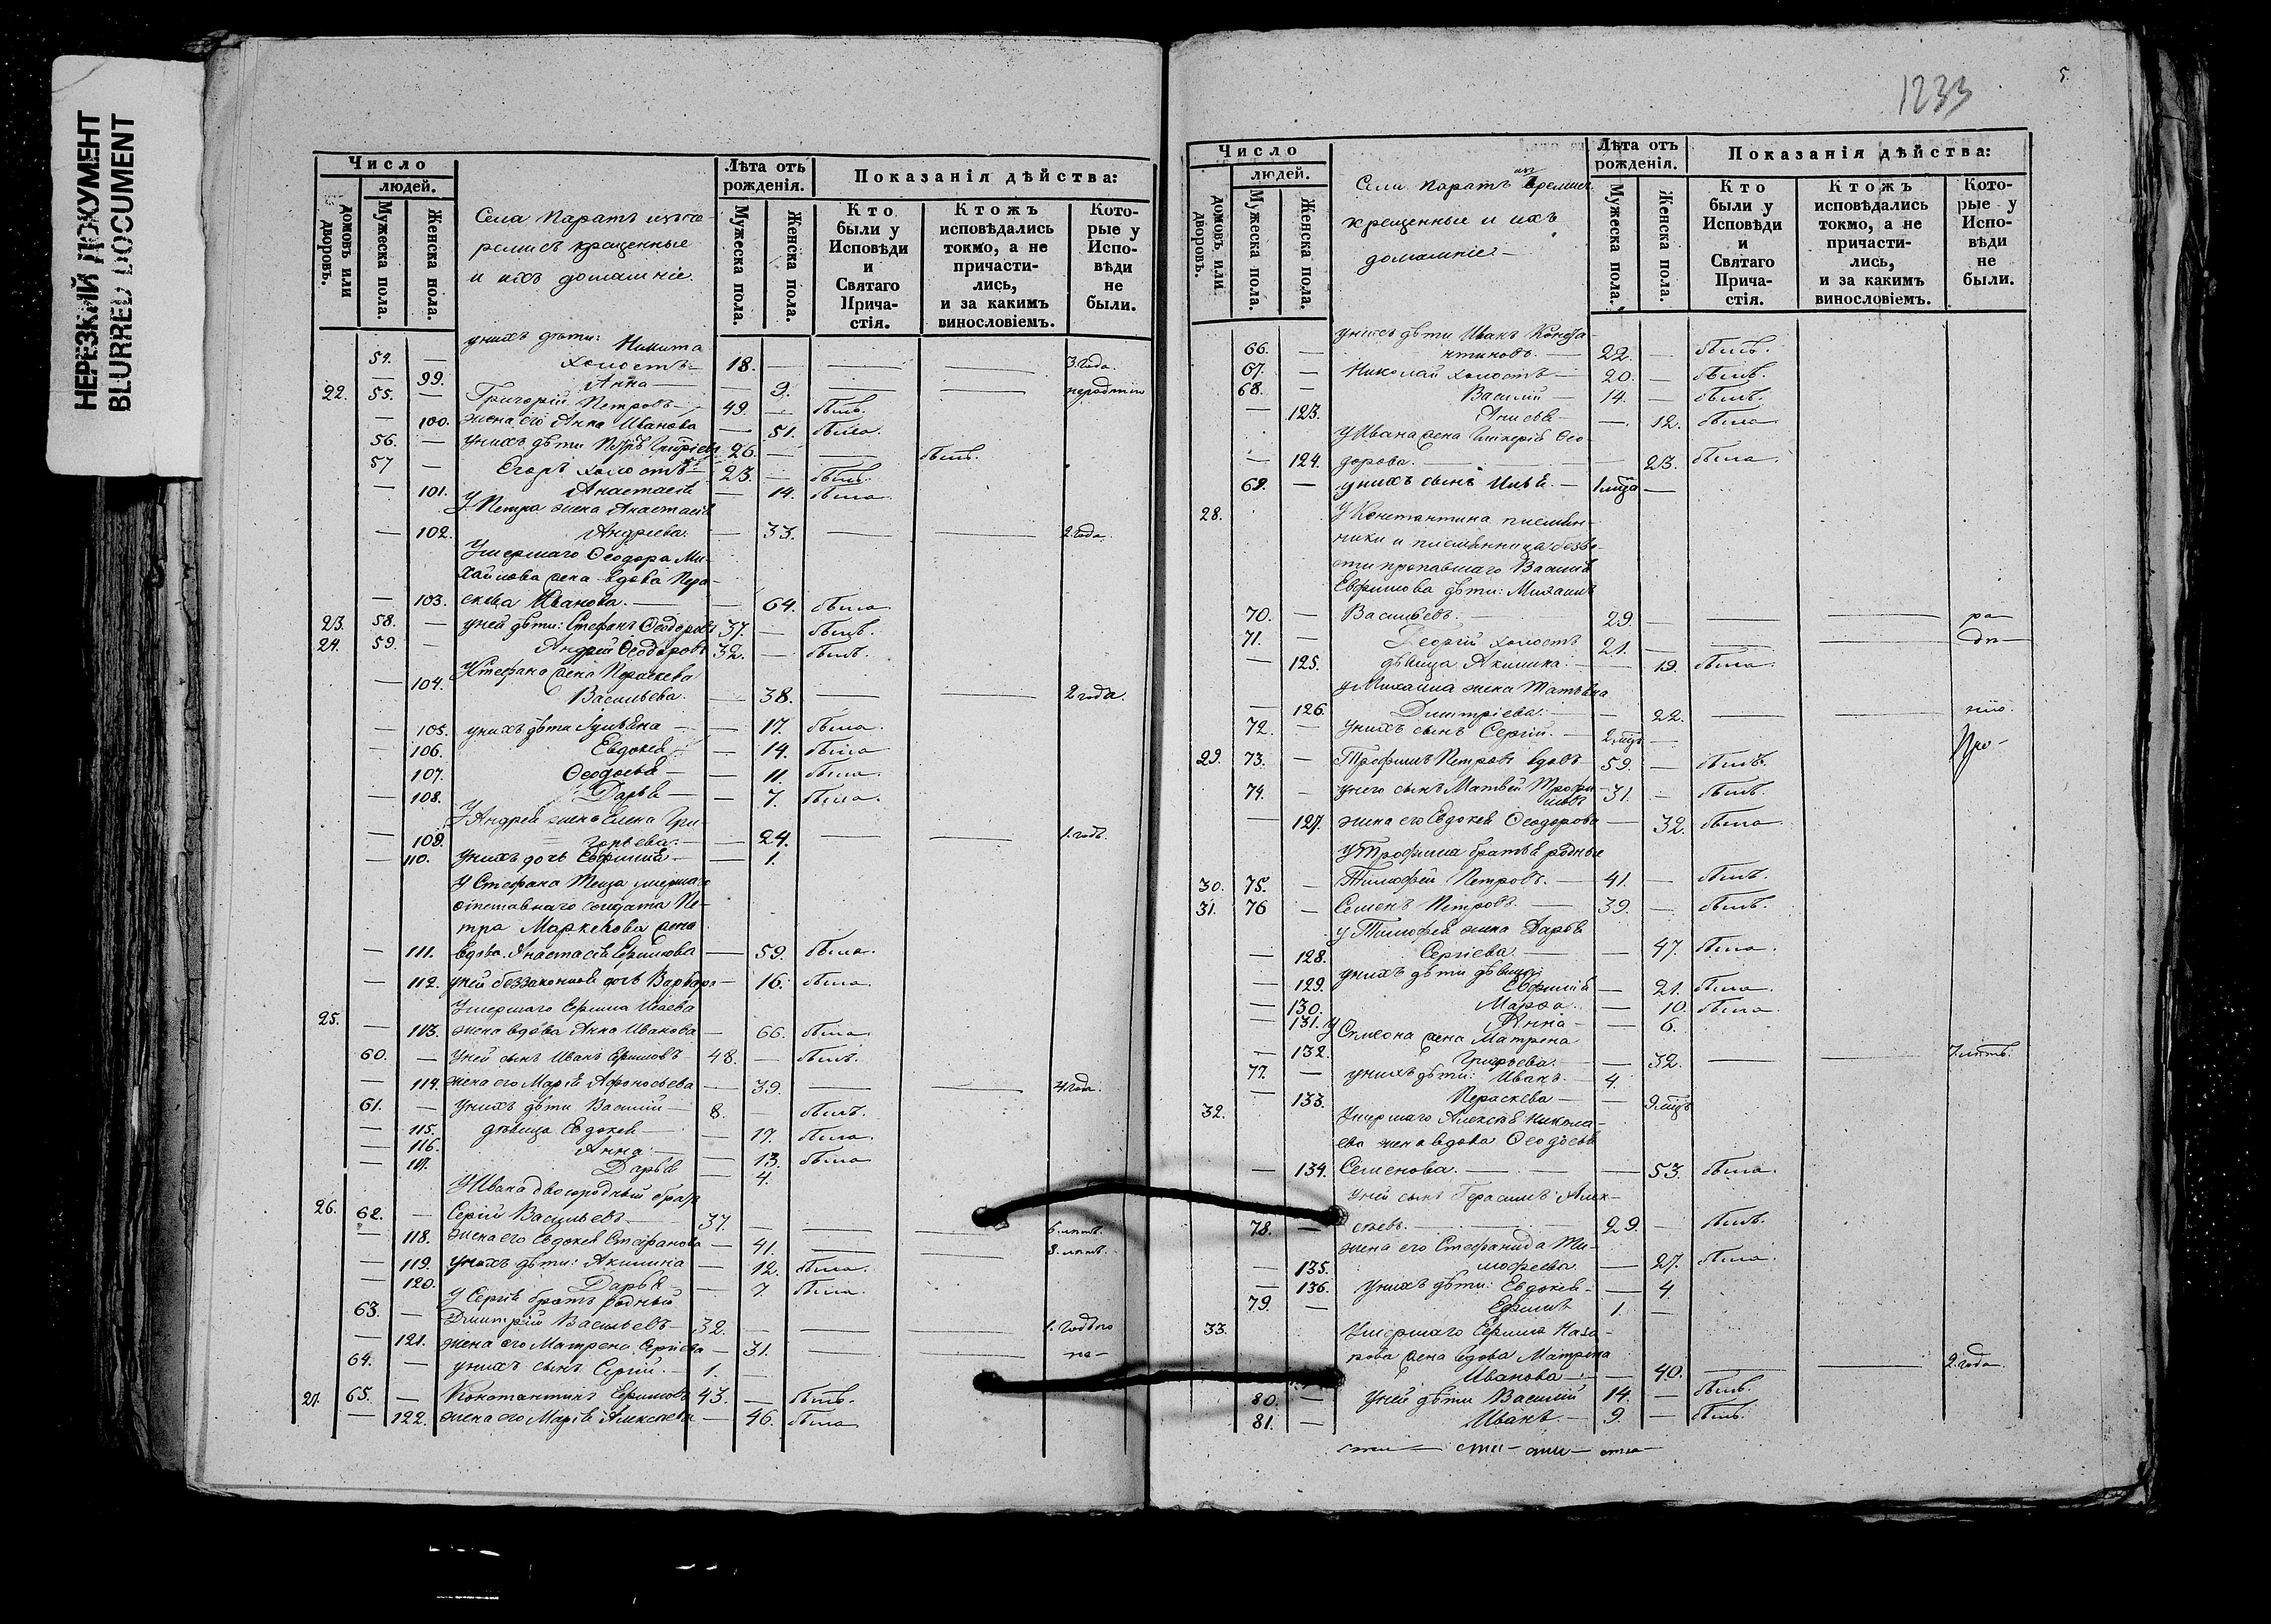 НЕРЕЗКИЙ ДОКУМЕНТ
BLURRED DOCUMENT
Число
людей.
домовъ или дворовъ.
Мужеска пола.
Женска пола.
Села Паратъ изъ че-
ремисъ крещенные
и ихъ домашніе.
Лѣта отъ рожденія.
Мужеска пола.
Женска пола.
Показанія дѣйства:
Кто были у Исповѣди и Святаго Причастія.
Ктожъ исповѣдались токмо, а не причастились, и за какимъ винословіемъ.
Которые у Исповѣди не были.
унихъ дѣти: Никита
54. — холостъ — 18. — — — 3 года.
— 99. Анна — 9. —
22. 55. — Григорій Петровъ — 49. — былъ.
— 100. жена его Анна Иванова — 51. была.
56. — унихъ дѣти Петръ Григорьевъ 26. — — былъ.
57 — Егоръ холостъ — 23. — былъ.
— 101. Анастасія — 14. была.
У Петра жена Анастасія
— 102. Андреева. — 33. — — 2 года.
Умершаго Ѳеодора Ми-
хайлова жена вдова Пара-
— 103. скева Иванова. — — 64. была
23. 58. — уней дѣти: Стефанъ Ѳеодоровъ 37. — былъ.
24. 59. — Андрей Ѳеодоровъ 32. — былъ.
У Стефана жена Параскева
— 104. Васильева. — 38. — — 2 года.
— 105. унихъ дѣти Ульяна — — 17. была.
— 106. Евдокія — — 14. была
— 107. Ѳеодосія — — 11. была.
— 108. Дарья — — 7. была.
У Андрея жена Елена Гри-
— 109. горьева. — — 24. — — 1. годъ.
— 110. унихъ дочь Евфимія — — 1.
У Стефана теща умершаго
отставнаго солдата Пе-
тра Маркелова жена
— 111. вдова Анастасія Ефимова — 59. была.
— 112. уней беззаконная дочь Варвара — 16. была.
Умершаго Ефима Исаева
25. — 113. жена вдова Анна Иванова — 66. была.
60. — Уней сынъ Иванъ Ефимовъ — 48. — былъ.
— 114. жена его Марія Афонасьева — 39. — — 4 года.
61. — унихъ дѣти Василій — 8. — былъ.
— 115. дѣвица Евдокія — — 17. была.
— 116. Анна — — 13. была
— 117. Дарья — — 4.
У Ивана двоюродный братъ
26. 62. — Сергій Васильевъ — 37. — — — 6. лѣтъ.
— 118. жена его Евдокія Стефанова — 41. — — 8. лѣтъ.
— 119. унихъ дѣти: Акилина — — 12. была.
— 120. Дарья — — 7. была.
У Сергія братъ родный
63. — Дмитрій Васильевъ — 32. — — — 1. годъ
— 121. жена его Матрена Сергіева — 31. — —
64. — унихъ сынъ Сергій. — 1. —
27. 65. — Константинъ Ефимовъ 43. — былъ.
— 122. жена его Марія Алексѣева — 46. была
1233
5.
Число
людей.
домовъ или дворовъ.
Мужеска пола.
Женска пола.
Села Паратъ изъ черемисъ
крещенные и ихъ
домашніе —
Лѣта отъ рожденія.
Мужеска пола.
Женска пола.
Показанія дѣйства:
Кто были у Исповѣди и Святаго Причастія.
Ктожъ исповѣдались токмо, а не причастились, и за какимъ винословіемъ.
Которые у Исповѣди не были.
унихъ дѣти Иванъ Конста-
66. — нтиновъ. — 22. — былъ.
67. — Николай холостъ — 20. — былъ.
68. — Василій — 14. — былъ.
— 123. Анисья — — 12. была
У Ивана жена Ѳео-
— 124. дорова. — — 23. была.
69. — унихъ сынъ Илья. — 1 —
28. У Константина племян-
ники и племянница безвѣ-
сти пропавшаго Василія
Евфимова дѣти: Михаилъ
70. — Васильевъ. — 29. — — —
71. — Георгій холостъ 21. — — —
— 125. дѣвица Акилина. — — 19. была.
у Михаила жена Татьяна
— 126. Димитріева. — — 22. — —
72. — унихъ сынъ Сергій. — 2 —
29. 73. — Трофимъ Петровъ вдовъ — 59. — былъ.
74. — унего сынъ Матвѣй Трофи-
мовъ 31. — былъ.
— 127. жена его Евдокія Ѳеодорова — 32. была
у Трофима братья родные
30. 75. — Тимофей Петровъ. — 41. — былъ.
31. 76 — Семенъ Петровъ. — 39. — былъ.
у Тимофея жена Дарья
— 128. Сергіева. — — 47. была.
унихъ дѣти дѣвица
— 129. Евфимія — — 21. была.
— 130. Марѳа — — 10. была.
— 131. Анна — — 6.
У Симеона жена Матрена
— 132. Григорьева. — — 32. — — 7 лѣтъ.
77. — унихъ дѣти: Иванъ. — 4.
— 133. Параскева — — 9
32. Умершаго Алексѣя Никола-
ева жена вдова Ѳеодосія
— 134. Семенова. — — 53. была.
уней сынъ Герасимъ Алек-
78. — сѣевъ. — 29. — былъ.
жена его Стефанида Ти-
— 135. мофеева — — 27. была.
— 136. унихъ дѣти: Евдокія — — 4
79. — Ефимъ 1. —
33. Умершаго Ефима Наза-
рова жена вдова Матрена
Иванова — — 40. — — 2 года
80. — уней дѣти Василій 14. — былъ.
81. — Иванъ. — 9. — былъ.